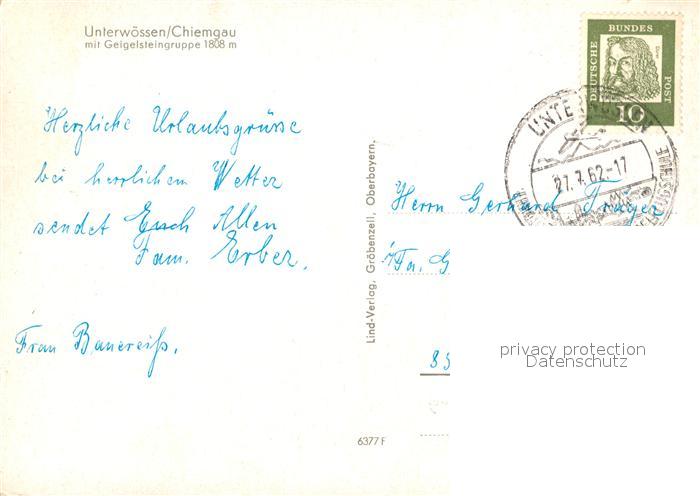 Unterwössen/Chiemgau
mit Geigelsteingruppe 1808 m
Herzliche Urlaubsgrüsse
bei herrlichem Wetter
sendet Euch Allen
Fam. Erber.
Frau Bauereiß.
Lind-Verlag, Gröbenzell, Oberbayern.
6377 F
DEUTSCHE BUNDESPOST
Dürer
10
27.7.62.-17
Herrn Gerhard Träger
Fa. G
85
privacy protection
Datenschutz